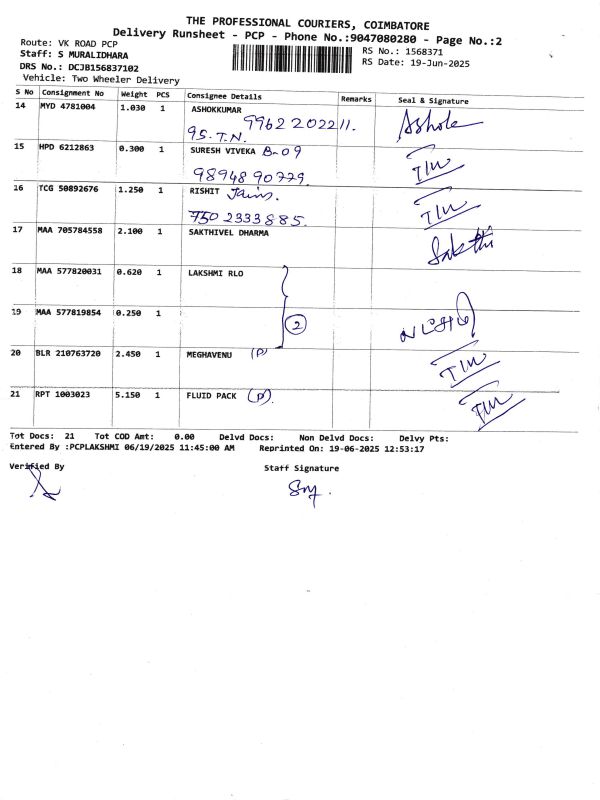 THE PROFESSIONAL COURIERS, COIMBATORE
Delivery Runsheet - PCP - Phone No.:9047080280 - Page No.:2
Route: VK ROAD PCP
Staff: S MURALIDHARA
DRS No.: DCJB156837102
Vehicle: Two Wheeler Delivery
RS No.: 1568371
RS Date: 19-Jun-2025
S No Consignment No Weight PCS Consignee Details Remarks Seal & Signature
14 MYD 4781004 1.030 1 ASHOKKUMAR
95. T.N. 9962202211. Ashok
15 HPD 6212863 0.300 1 SURESH VIVEKA B-09
9894890779.
16 TCG 50892676 1.250 1 RISHIT Jains.
7502333885.
17 MAA 705784558 2.100 1 SAKTHIVEL DHARMA Sakthi
18 MAA 577820031 0.620 1 LAKSHMI RLO
19 MAA 577819854 0.250 1
2
20 BLR 210763720 2.450 1 MEGHAVENU (P)
21 RPT 1003023 5.150 1 FLUID PACK (P).
Tot Docs: 21 Tot COD Amt: 0.00 Delvd Docs: Non Delvd Docs: Delvy Pts:
Entered By :PCPLAKSHMI 06/19/2025 11:45:00 AM Reprinted On: 19-06-2025 12:53:17
Verified By Staff Signature